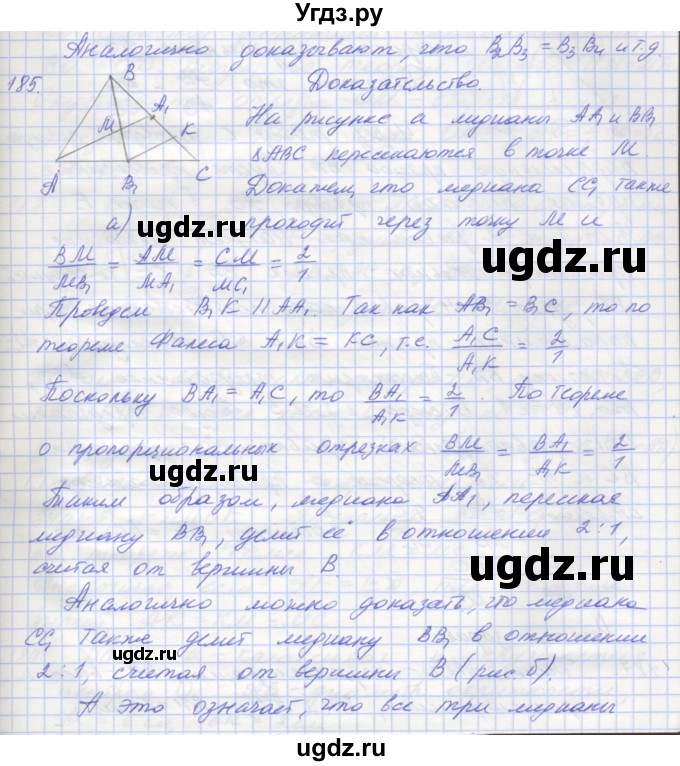 Угдз.ру
Аналогично доказывают, что B₂B₃ = B₃B₄ и т.д.
185.
B
A₁
M
K
A
B₁
C
а)
Доказательство.
На рисунке а медианы AA₁ и BB₁
ΔABC пересекаются в точке M.
Докажем, что медиана CC₁ также
проходит через точку M и
BM/MB₁ = AM/MA₁ = CM/MC₁ = 2/1
Проведем B₁K || AA₁. Так как AB₁ = B₁C, то по
теореме Фалеса A₁K = KC, т.е. A₁C/A₁K = 2/1
Поскольку BA₁ = A₁C, то BA₁/A₁K = 2/1. По теореме
о пропорциональных отрезках BM/MB₁ = BA₁/A₁K = 2/1
Таким образом, медиана AA₁, пересекая
медиану BB₁, делит её в отношении 2:1,
считая от вершины B
Аналогично можно доказать, что медиана
CC₁ также делит медиану BB₁ в отношении
2:1, считая от вершины B (рис б).
А это означает, что все три медианы
ugdz.ru
ugdz.ru
ugdz.ru
ugdz.ru
ugdz.ru
ugdz.ru
ugdz.ru
ugdz.ru
ugdz.ru